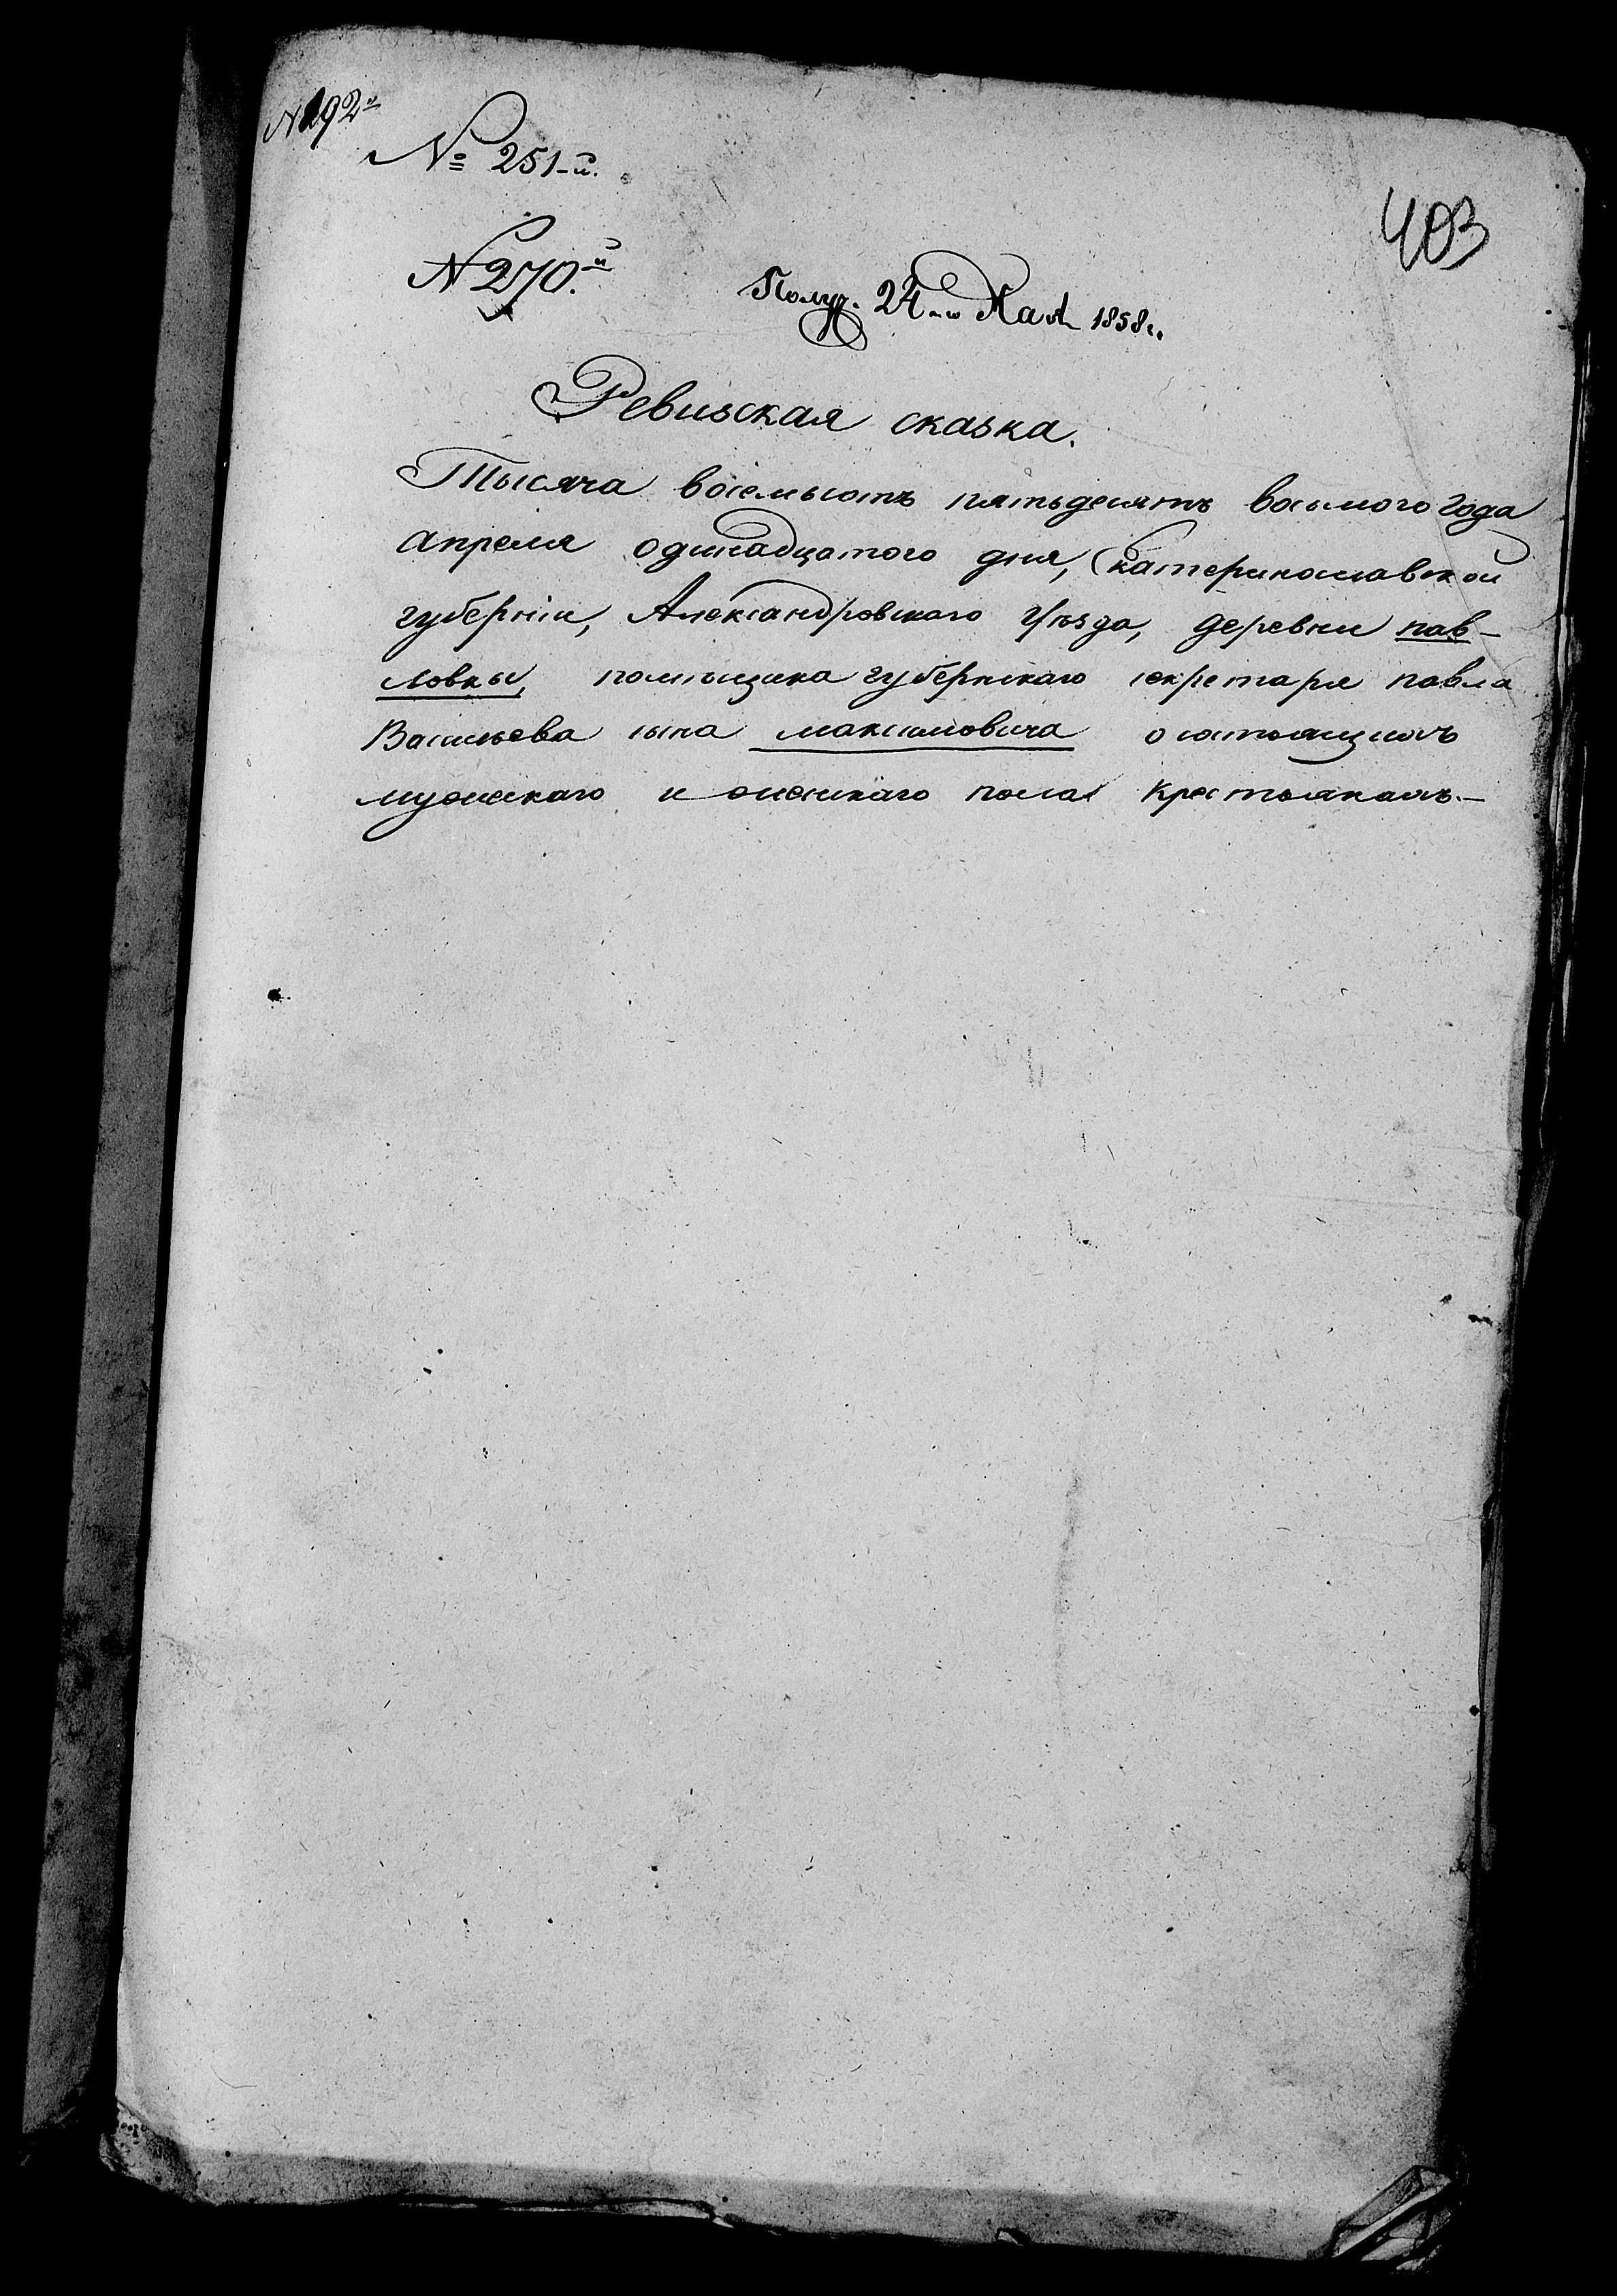 N 192й
№ 251-й.
403
N 270.й
Получ. 24-го Мая 1858 г.
Ревизская сказка.
Тысяча восемьсотъ пятьдесятъ восьмого года
апреля одинадцатого дня, Екатеринославской
губерніи, Александровскаго уѣзда, деревни пав-
ловки, помѣщика губернскаго секретаря павла
Васильева сына максимовича о состоящихъ
мужескаго и женскаго пола крестьянахъ.—